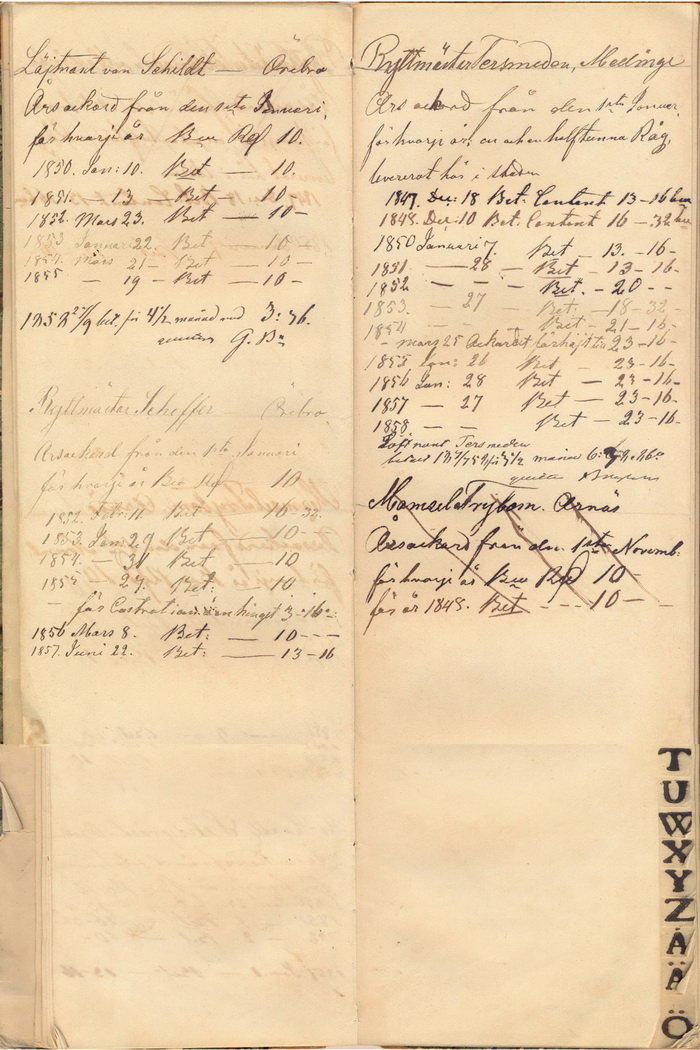 Löjtnant von Schildt — Örebro
Årsackord från den 1sta Januari,
för hvarje år Bco Rdf 10.
1850. Jan: 10. Bet — 10.
1851. — 13 — Bet — 10 —
1852. Mars 23. Bet — 10 —
1853 Januari 22. Bet — 10 —
1854. Mars 21 — Bet — 10 —
1855 — 19 — Bet — 10 —
bet. för 4 1/2 månad med 3: 36.
G. Bn
Ryttmästar Scheffer — Örebro.
Årsackord från den 1sta Januari
för hvarje år Bco Rdf 10
1852. Febr: 11. Bet 16 - 32.
1853. Jan 29 Bet — 10 —
1854. — 31 Bet — 10
1855 27. Bet: — 10
— för Castration af en hingst 3 - 16 -
1856 Mars 8. Bet: — 10 - - -
1857. Juni 22. Bet: — 13 - 16
Ryttmästar Tersmeden, Medinge
Års ackord från den 1sta Januari
för hvarje år, en och en half tunna Råg,
levererat här i staden
1847. Dec: 18 Bet. Contant 13 - 16 bco
1848. Dec: 10 Bet. Contant 16 — 32 bco
1850 Januari 7. Bet — 13. - 16 -
1851 — 28 — Bet — 13 - 16 -
1852 — — — Bet. — 20 — —
1853. — 27 Bet. — 18 - 32 -
1854 — — Bet — 21 - 16 -
— Mars 25 Ackordet förhöjt till 23 - 16 -
1855 Jan: 26 Bet — 23 - 16 -
1856 Jan: 28 Bet — 23 - 16 -
1857 — 27 Bet — 23 - 16 -
1858 — — Bet — 23 - 16 -
Löjtnant Tersmeden
Mamsel Trybom. Arnäs
Årsackord från den 1sta Novemb:
för hvarje år Bco Rdf 10 —
för år 1848. Bet - - - 10 —
T
U
W
X
Y
Z
Å
Ä
Ö